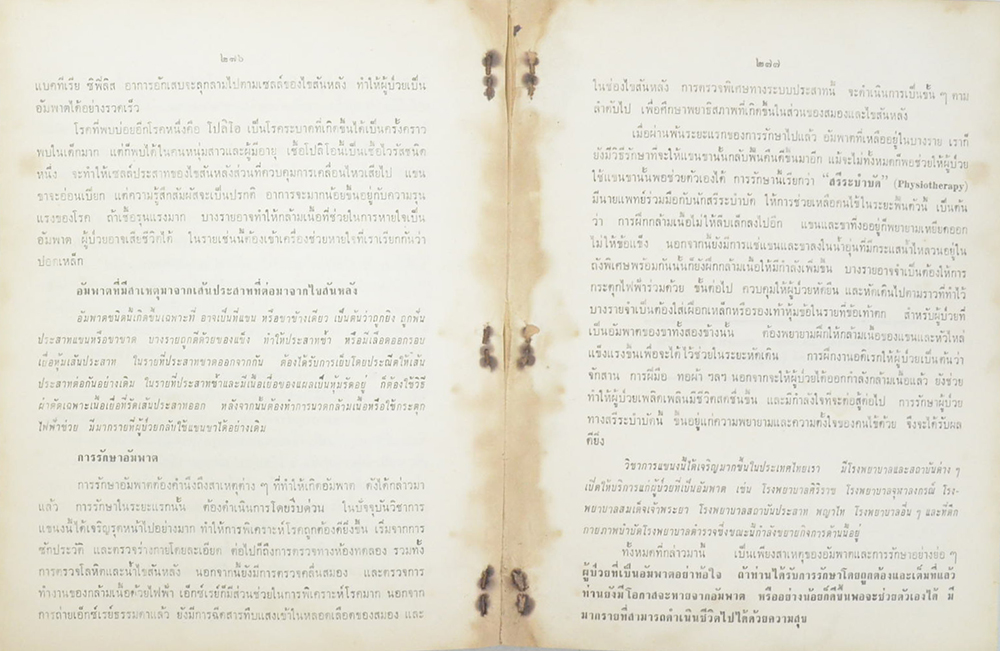 ๒๗๖
แบคทีเรีย ซิฟิลิส อาการอักเสบจะลุกลามไปตามเซลล์ของไขสันหลัง ทำให้ผู้ป่วยเป็น
อัมพาตได้อย่างรวดเร็ว
โรคที่พบบ่อยอีกโรคหนึ่งคือ โปลิโอ เป็นโรคระบาดที่เกิดขึ้นได้เป็นครั้งคราว
พบในเด็กมาก แต่ก็พบได้ในคนหนุ่มสาวและผู้มีอายุ เชื้อโปลิโอนี้เป็นเชื้อไวรัสชนิด
หนึ่ง จะทำให้เซลล์ประสาทของไขสันหลังส่วนที่ควบคุมการเคลื่อนไหวเสียไป แขน
ขาจะอ่อนเปียก แต่ความรู้สึกสัมผัสจะเป็นปรกติ อาการจะมากน้อยขึ้นอยู่กับความรุน
แรงของโรค ถ้าเชื้อรุนแรงมาก บางรายอาจทำให้กล้ามเนื้อที่ช่วยในการหายใจเป็น
อัมพาต ผู้ป่วยอาจเสียชีวิตได้ ในรายเช่นนี้ต้องเข้าเครื่องช่วยหายใจที่เราเรียกกันว่า
ปอดเหล็ก
อัมพาตที่มีสาเหตุมาจากเส้นประสาทที่ต่อมาจากไขสันหลัง
อัมพาตชนิดนี้เกิดขึ้นเฉพาะที่ อาจเป็นที่แขน หรือขาข้างเดียว เป็นต้นว่าถูกยิง ถูกฟัน
ประสาทแขนหรือขาขาด บางรายถูกตีด้วยของแข็ง ทำให้ประสาทช้ำ หรือมีเลือดออกรอบ
เยื่อหุ้มเส้นประสาท ในรายที่ประสาทขาดออกจากกัน ต้องได้รับการเย็บโดยประณีตให้เส้น
ประสาทต่อกันอย่างเดิม ในรายที่ประสาทช้ำและมีเนื้อเยื่อของแผลเป็นหุ้มรัดอยู่ ก็ต้องใช้วิธี
ผ่าตัดเฉพาะเนื้อเยื่อที่รัดเส้นประสาทออก หลังจากนั้นต้องทำการนวดกล้ามเนื้อหรือใช้กระตุก
ไฟฟ้าช่วย มีมากรายที่ผู้ป่วยกลับใช้แขนขาได้อย่างเดิม
การรักษาอัมพาต
การรักษาอัมพาตต้องคำนึงถึงสาเหตุต่าง ๆ ที่ทำให้เกิดอัมพาต ดังได้กล่าวมา
แล้ว การรักษาในระยะแรกนั้น ต้องดำเนินการโดยรีบด่วน ในปัจจุบันวิชาการ
แขนงนี้ได้เจริญรุดหน้าไปอย่างมาก ทำให้การวิเคราะห์โรคถูกต้องดียิ่งขึ้น เริ่มจากการ
ซักประวัติ และตรวจร่างกายโดยละเอียด ต่อไปก็ถึงการตรวจทางห้องทดลอง รวมทั้ง
การตรวจโลหิตและน้ำไขสันหลัง นอกจากนี้ยังมีการตรวจคลื่นสมอง และตรวจการ
ทำงานของกล้ามเนื้อด้วยไฟฟ้า เอ็กซ์เรย์ก็มีส่วนช่วยในการวิเคราะห์โรคมาก นอกจาก
การถ่ายเอ็กซ์เรย์ธรรมดาแล้ว ยังมีการฉีดสารทึบแสงเข้าในหลอดเลือดของสมอง และ
๒๗๗
ในช่องไขสันหลัง การตรวจพิเศษทางระบบประสาทนี้ จะดำเนินการเป็นขั้น ๆ ตาม
ลำดับไป เพื่อศึกษาพยาธิสภาพที่เกิดขึ้นในส่วนของสมองและไขสันหลัง
เมื่อผ่านพ้นระยะแรกของการรักษาไปแล้ว อัมพาตที่เหลืออยู่ในบางราย เราก็
ยังมีวิธีรักษาที่จะให้แขนขานั้นกลับฟื้นคืนดีขึ้นมาอีก แม้จะไม่ทั้งหมดก็พอช่วยให้ผู้ป่วย
ใช้แขนขานั้นพอช่วยตัวเองได้ การรักษานี้เรียกว่า “สรีระบำบัด” (Physiotherapy)
มีนายแพทย์ร่วมมือกับนักสรีระบำบัด ให้การช่วยเหลือคนไข้ในระยะฟื้นตัวนี้ เป็นต้น
ว่า การฝึกกล้ามเนื้อไม่ให้ลีบเล็กลงไปอีก แขนและขาที่งออยู่ก็พยายามเหยียดออก
ไม่ให้ข้อแข็ง นอกจากนี้ยังมีการแช่แขนและขาลงในน้ำอุ่นที่มีกระแสน้ำไหลวนอยู่ใน
ถังพิเศษพร้อมกันนั้นก็ยังฝึกกล้ามเนื้อให้มีกำลังเพิ่มขึ้น บางรายอาจจำเป็นต้องให้การ
กระตุกไฟฟ้าร่วมด้วย ขั้นต่อไป ควบคุมให้ผู้ป่วยหัดยืน และหัดเดินไปตามราวที่ทำไว้
บางรายจำเป็นต้องใส่เฝือกเหล็กหรือรองเท้าหุ้มข้อในรายที่ข้อเท้าตก สำหรับผู้ป่วยที่
เป็นอัมพาตของขาทั้งสองข้างนั้น ต้องพยายามฝึกให้กล้ามเนื้อของแขนและหัวไหล่
แข็งแรงขึ้นเพื่อจะได้ไว้ช่วยในระยะหัดเดิน การฝึกงานอดิเรกให้ผู้ป่วยเป็นต้นว่า
จักสาน การฝีมือ ทอผ้า ฯลฯ นอกจากจะให้ผู้ป่วยได้ออกกำลังกล้ามเนื้อแล้ว ยังช่วย
ทำให้ผู้ป่วยเพลิดเพลินมีชีวิตสดชื่นขึ้น และมีกำลังใจที่จะต่อสู้ต่อไป การรักษาผู้ป่วย
ทางสรีระบำบัดนี้ ขึ้นอยู่แก่ความพยายามและความตั้งใจของคนไข้ด้วย จึงจะได้รับผล
ดียิ่ง
วิชาการแขนงนี้ได้เจริญมากขึ้นในประเทศไทยเรา มีโรงพยาบาลและสถาบันต่าง ๆ
เปิดให้บริการแก่ผู้ป่วยที่เป็นอัมพาต เช่น โรงพยาบาลศิริราช โรงพยาบาลจุฬาลงกรณ์ โรง-
พยาบาลสมเด็จเจ้าพระยา โรงพยาบาลสถาบันประสาท พญาไท โรงพยาบาลอื่น ๆ และที่ตึก
กายภาพบำบัดโรงพยาบาลตำรวจซึ่งขณะนี้กำลังขยายกิจการด้านนี้อยู่
ทั้งหมดที่กล่าวมานี้ เป็นเพียงสาเหตุของอัมพาตและการรักษาอย่างย่อ ๆ
ผู้ป่วยที่เป็นอัมพาตอย่าท้อใจ ถ้าท่านได้รับการรักษาโดยถูกต้องและเต็มที่แล้ว
ท่านยังมีโอกาสจะหายจากอัมพาต หรืออย่างน้อยก็ดีขึ้นพอจะช่วยตัวเองได้ มี
มากรายที่สามารถดำเนินชีวิตไปได้ด้วยความสุข